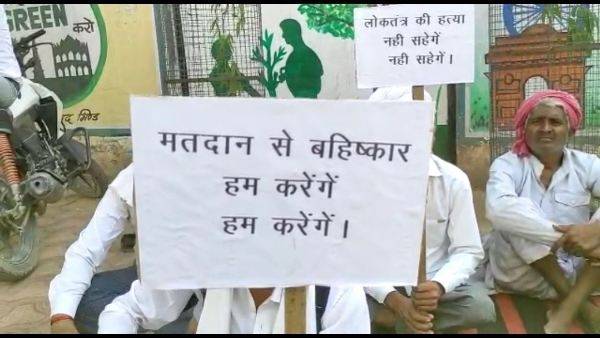 GREEN करो
लोकतंत्र की हत्या
नही सहेगें
नही सहेगें।
मतदान से बहिष्कार
हम करेंगें
हम करेंगें।